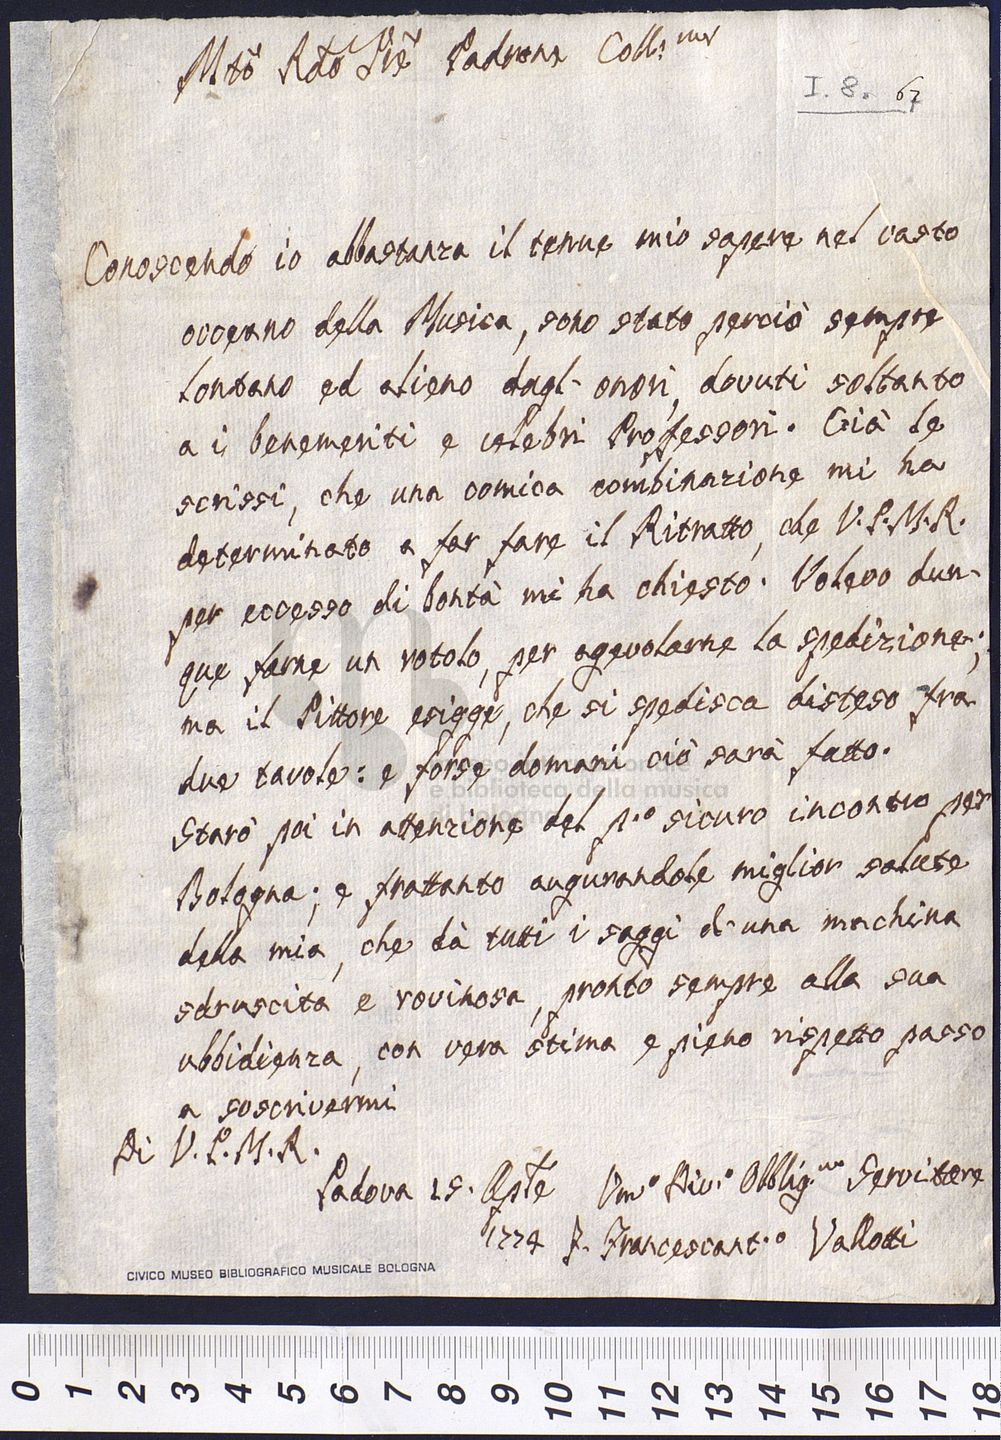 Mto Rdo Pre Padrone Coll.mo
I. 8. 67
Conoscendo io abbastanza il tenue mio sapere nel vasto
oceano della Musica, sono stato perciò sempre
lontano ed alieno dagl' onori, dovuti soltanto
a i benemeriti e celebri Professori. Già le
scrissi, che una comica combinazione mi ha
determinato a far fare il Ritratto, che V.P.M.R.
per eccesso di bontà mi ha chiesto. Volevo dun-
que farne un rotolo, per agevolarne la spedizione;
ma il Pittore esigge, che si spedisca disteso fra
due tavole: e forse domani ciò sarà fatto.
Starò poi in attenzione del p.o sicuro incontro per
Bologna; e frattanto augurandole miglior salute
della mia, che dà tutti i saggi d'una machina
sdruscita e rovinosa, pronto sempre alla sua
ubbidienza, con vera stima e pieno rispetto passo
a soscrivermi
Di V.P.M.R.
Padova 15. Aple Um.o Div.o Obblig.mo Servitore
1774 F. Francescant.o Vallotti
CIVICO MUSEO BIBLIOGRAFICO MUSICALE BOLOGNA
e biblioteca della musica
di bologna
0 1 2 3 4 5 6 7 8 9 10 11 12 13 14 15 16 17 18